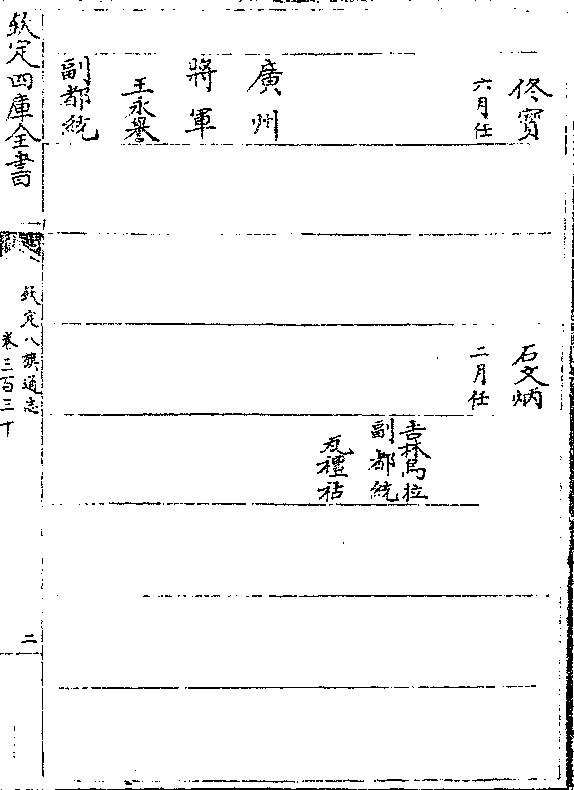 佟寶
六月任
廣州
將軍
王永譽
副都統
石文炳
二月任
吉林烏拉
副都統
瓦禮祜
欽定四庫全書
欽定八旗通志
卷三百三十
二